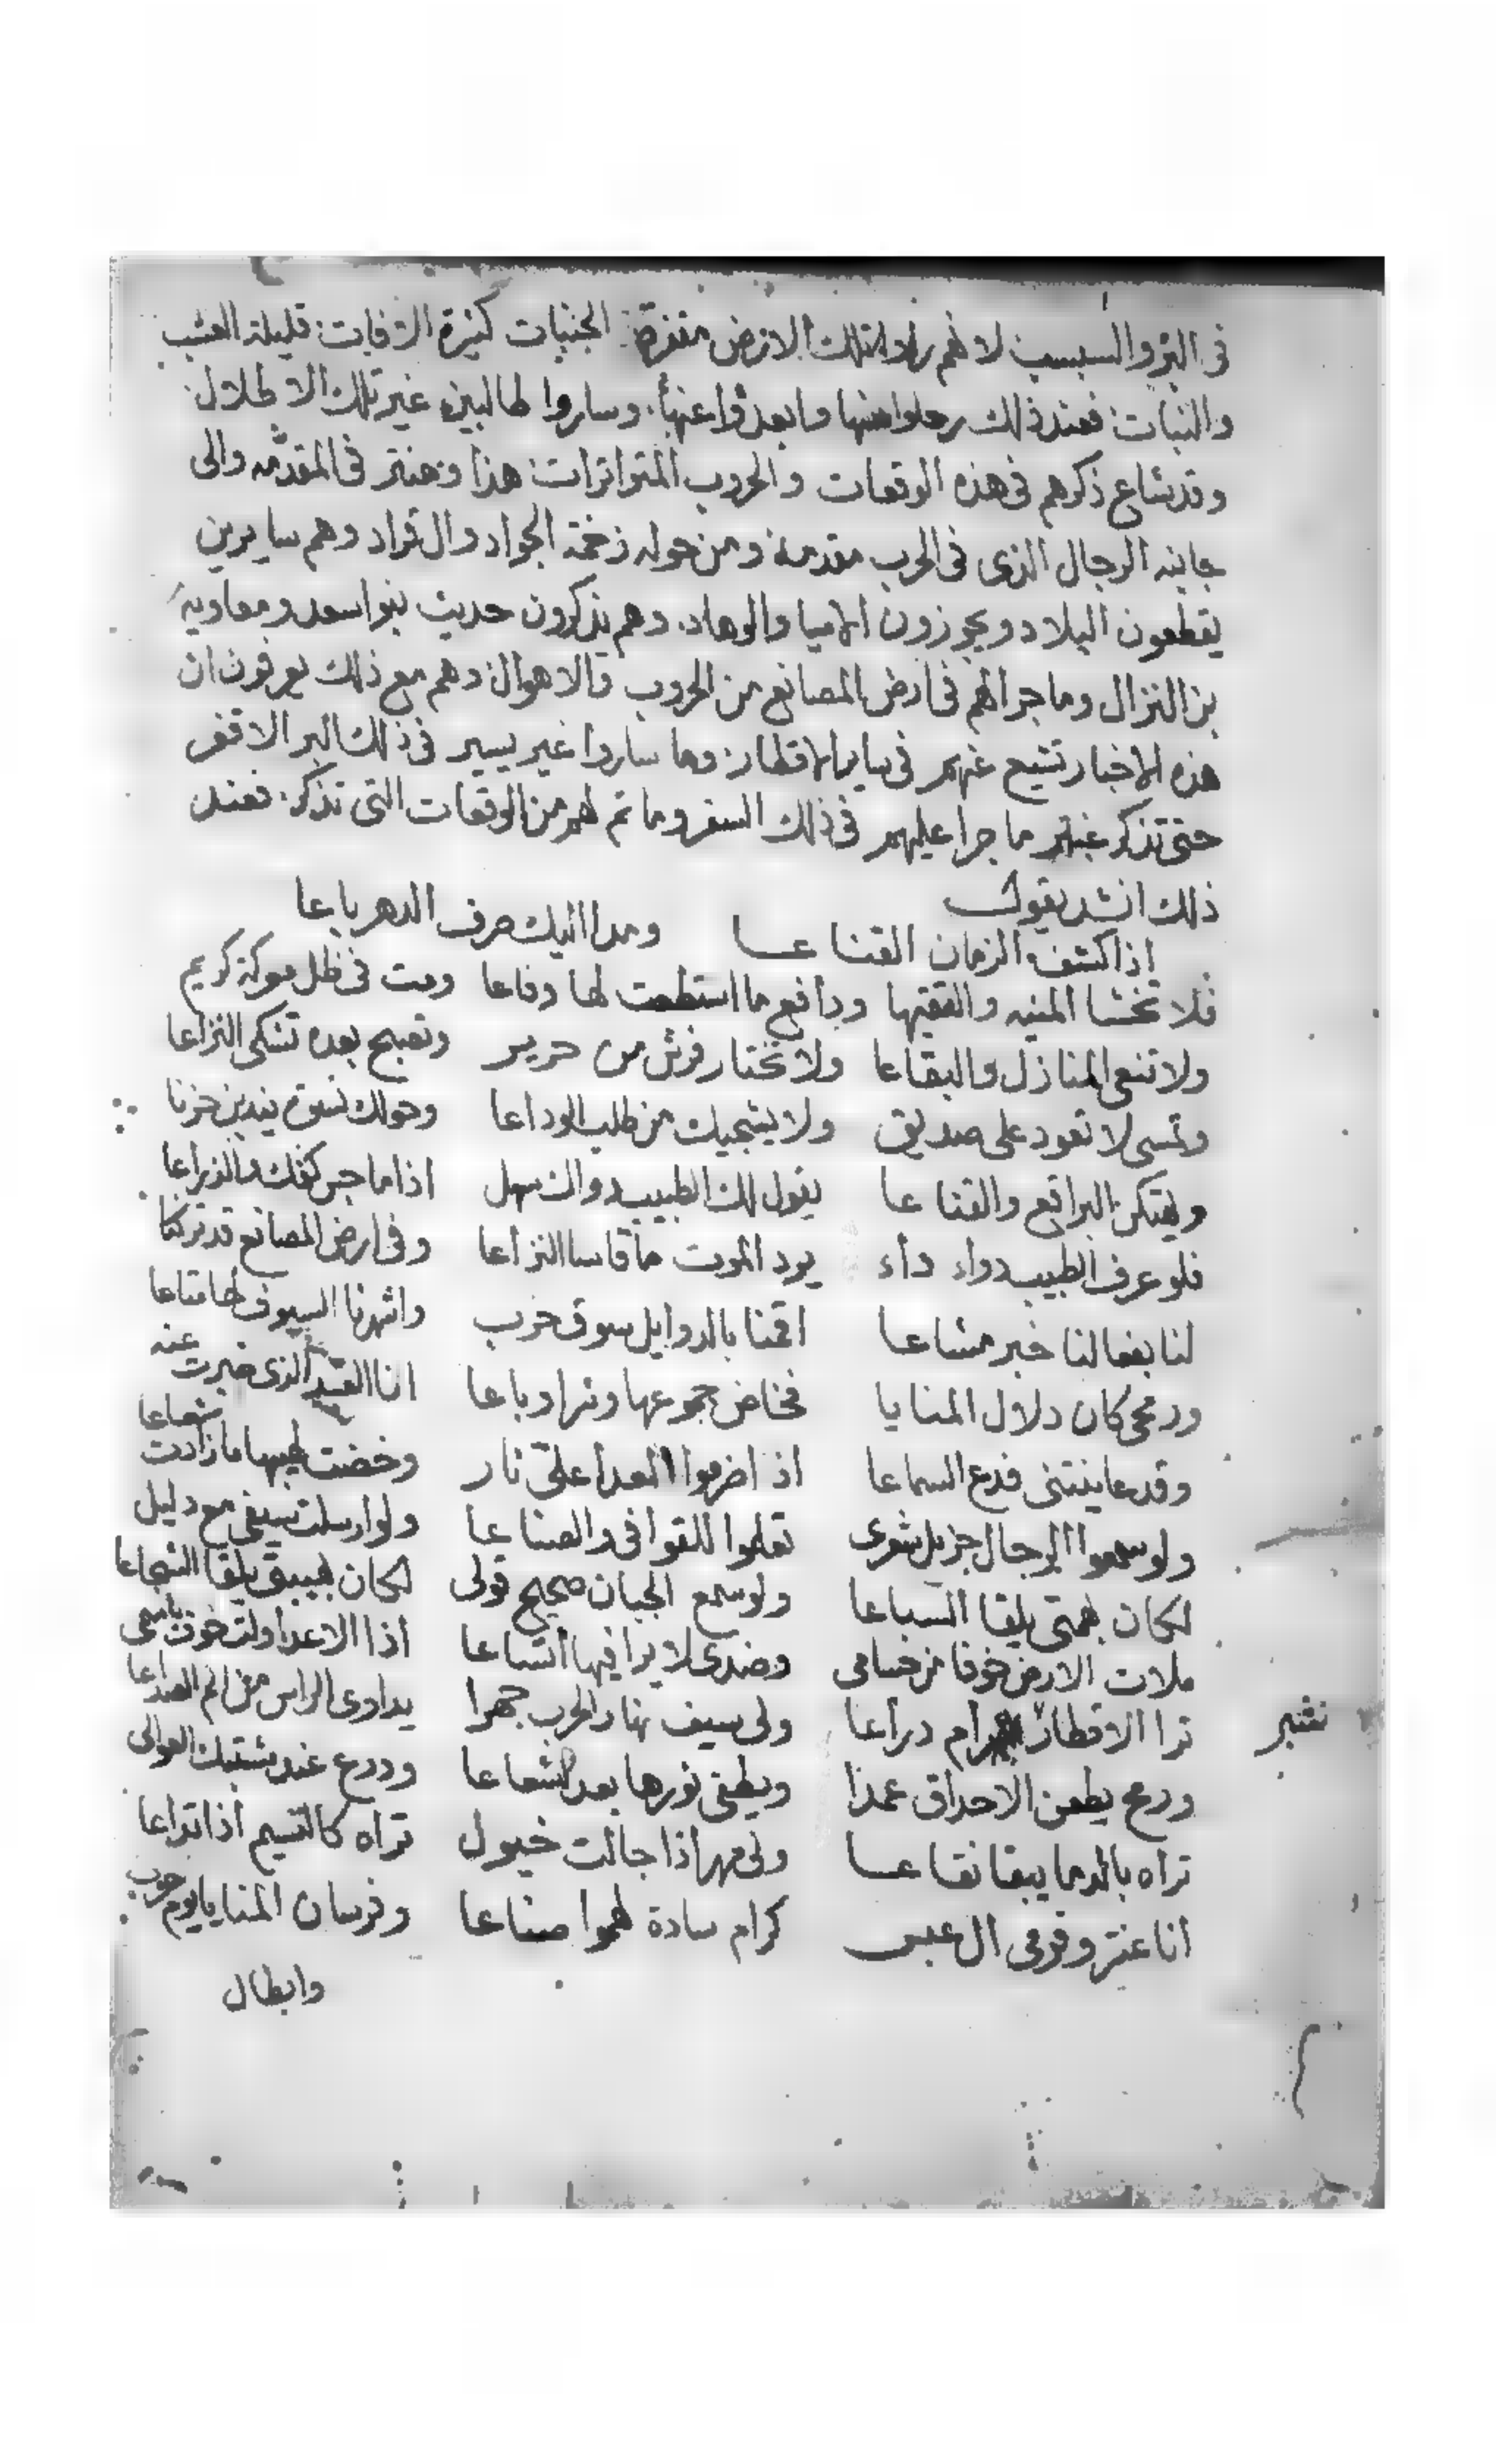 في البر والسبسب لانهم راوا تلك الارض مقفرة الجنبات كثيرة الافات قليلة العشب
والنبات فعند ذلك رحلوا منها وابعدوا عنها وساروا طالبين غير تلك الاطلال
وقد شاع ذكرهم في هذه الوقعات والحروب المتواترات هذا وعنتر في المقدمه والى
جانبه الرجال الذي في الحرب مقدمة ومن حوله زخمة الجواد وال قراد وهم سايرين
يقطعون البلاد ويجوزون الاميا والوهاد وهم يذكرون حديث بنو اسعد ومعاوية
بن النزال وما جرا لهم في ارض المصانع من الحروب والاهوال وهم مع ذلك يعرفون ان
هذه الاخبار تشيع عنهم في ساير الاقطار وما ساروا غير يسير في ذلك البر الاقفر
حتى تذكر عنتر ما جرا عليهم في ذلك السفر وما تم لهم من الوقعات التي تذكر فعند
ذلك انشد يقول
اذا كشف الزمان القناعا ومدا اليك صرف الدهر باعا
فلا تخشا المنيه والقيها ودافع ما استطعت لها دفاعا ومت في ظل معركة كريم
ولا تنعى المنازل والبقاعا ولا تختار فرش من حرير وتصبح بعده تشكى النزاعا
وتمسي لا تعود على صديق ولا يشجيك من طلب الوداعا وحولك نسوة يندبن حزنا
ويهتكن البراقع والقناعا يقول لك الطبيب دواك سهل اذا ما جس كفك والذراعا
فلو عرف الطبيب دواء داء يرد الموت ما قاسا النزاعا وفي ارض المصانع قد تركنا
لنا بفعالنا خبر مشاعا اقمنا بالدوابل سوق حرب واشهرنا السيوف لها متاعا
ورمحي كان دلال المنايا فخاض جموعها وشرا وباعا انا العبد الذي خبرت عنه
وقد عاينتني فدع السماعا اذ اضرموا العدا علي نار وخضت لهيبها ما زادت شعاعا
ولو سمعوا الرجال جزيل شعري تعلموا القوافي والصناعا ولو ارسلت سيفي مع دليل
لكان بهمتي يلقا السباعا ولو سمع الجبان صحيح قولي لكان بهيبتي يلقا الشجاعا
ملات الارض خوفا من حسامي وضدي لا يرا فيها اتساعا اذا الاعدا ولت خوف باسي
ترا الاقطار دراعا ولي سيف نهار الحرب جهرا يداوي الراس من الم الصداعا
نشبر
ورمح يطعن الاحداق عمدا ويطفي نورها بعد الشعاعا ودرع عند مشتبك العوالي
تراه بالدما يبقا نقاعا ولي مهر اذا جالت خيول تراه كالنسيم اذا تراعا
انا عنتر وقومي ال عبس كرام سادة لهموا صناعا وفرسان المنايا يوم حرب
وابطال